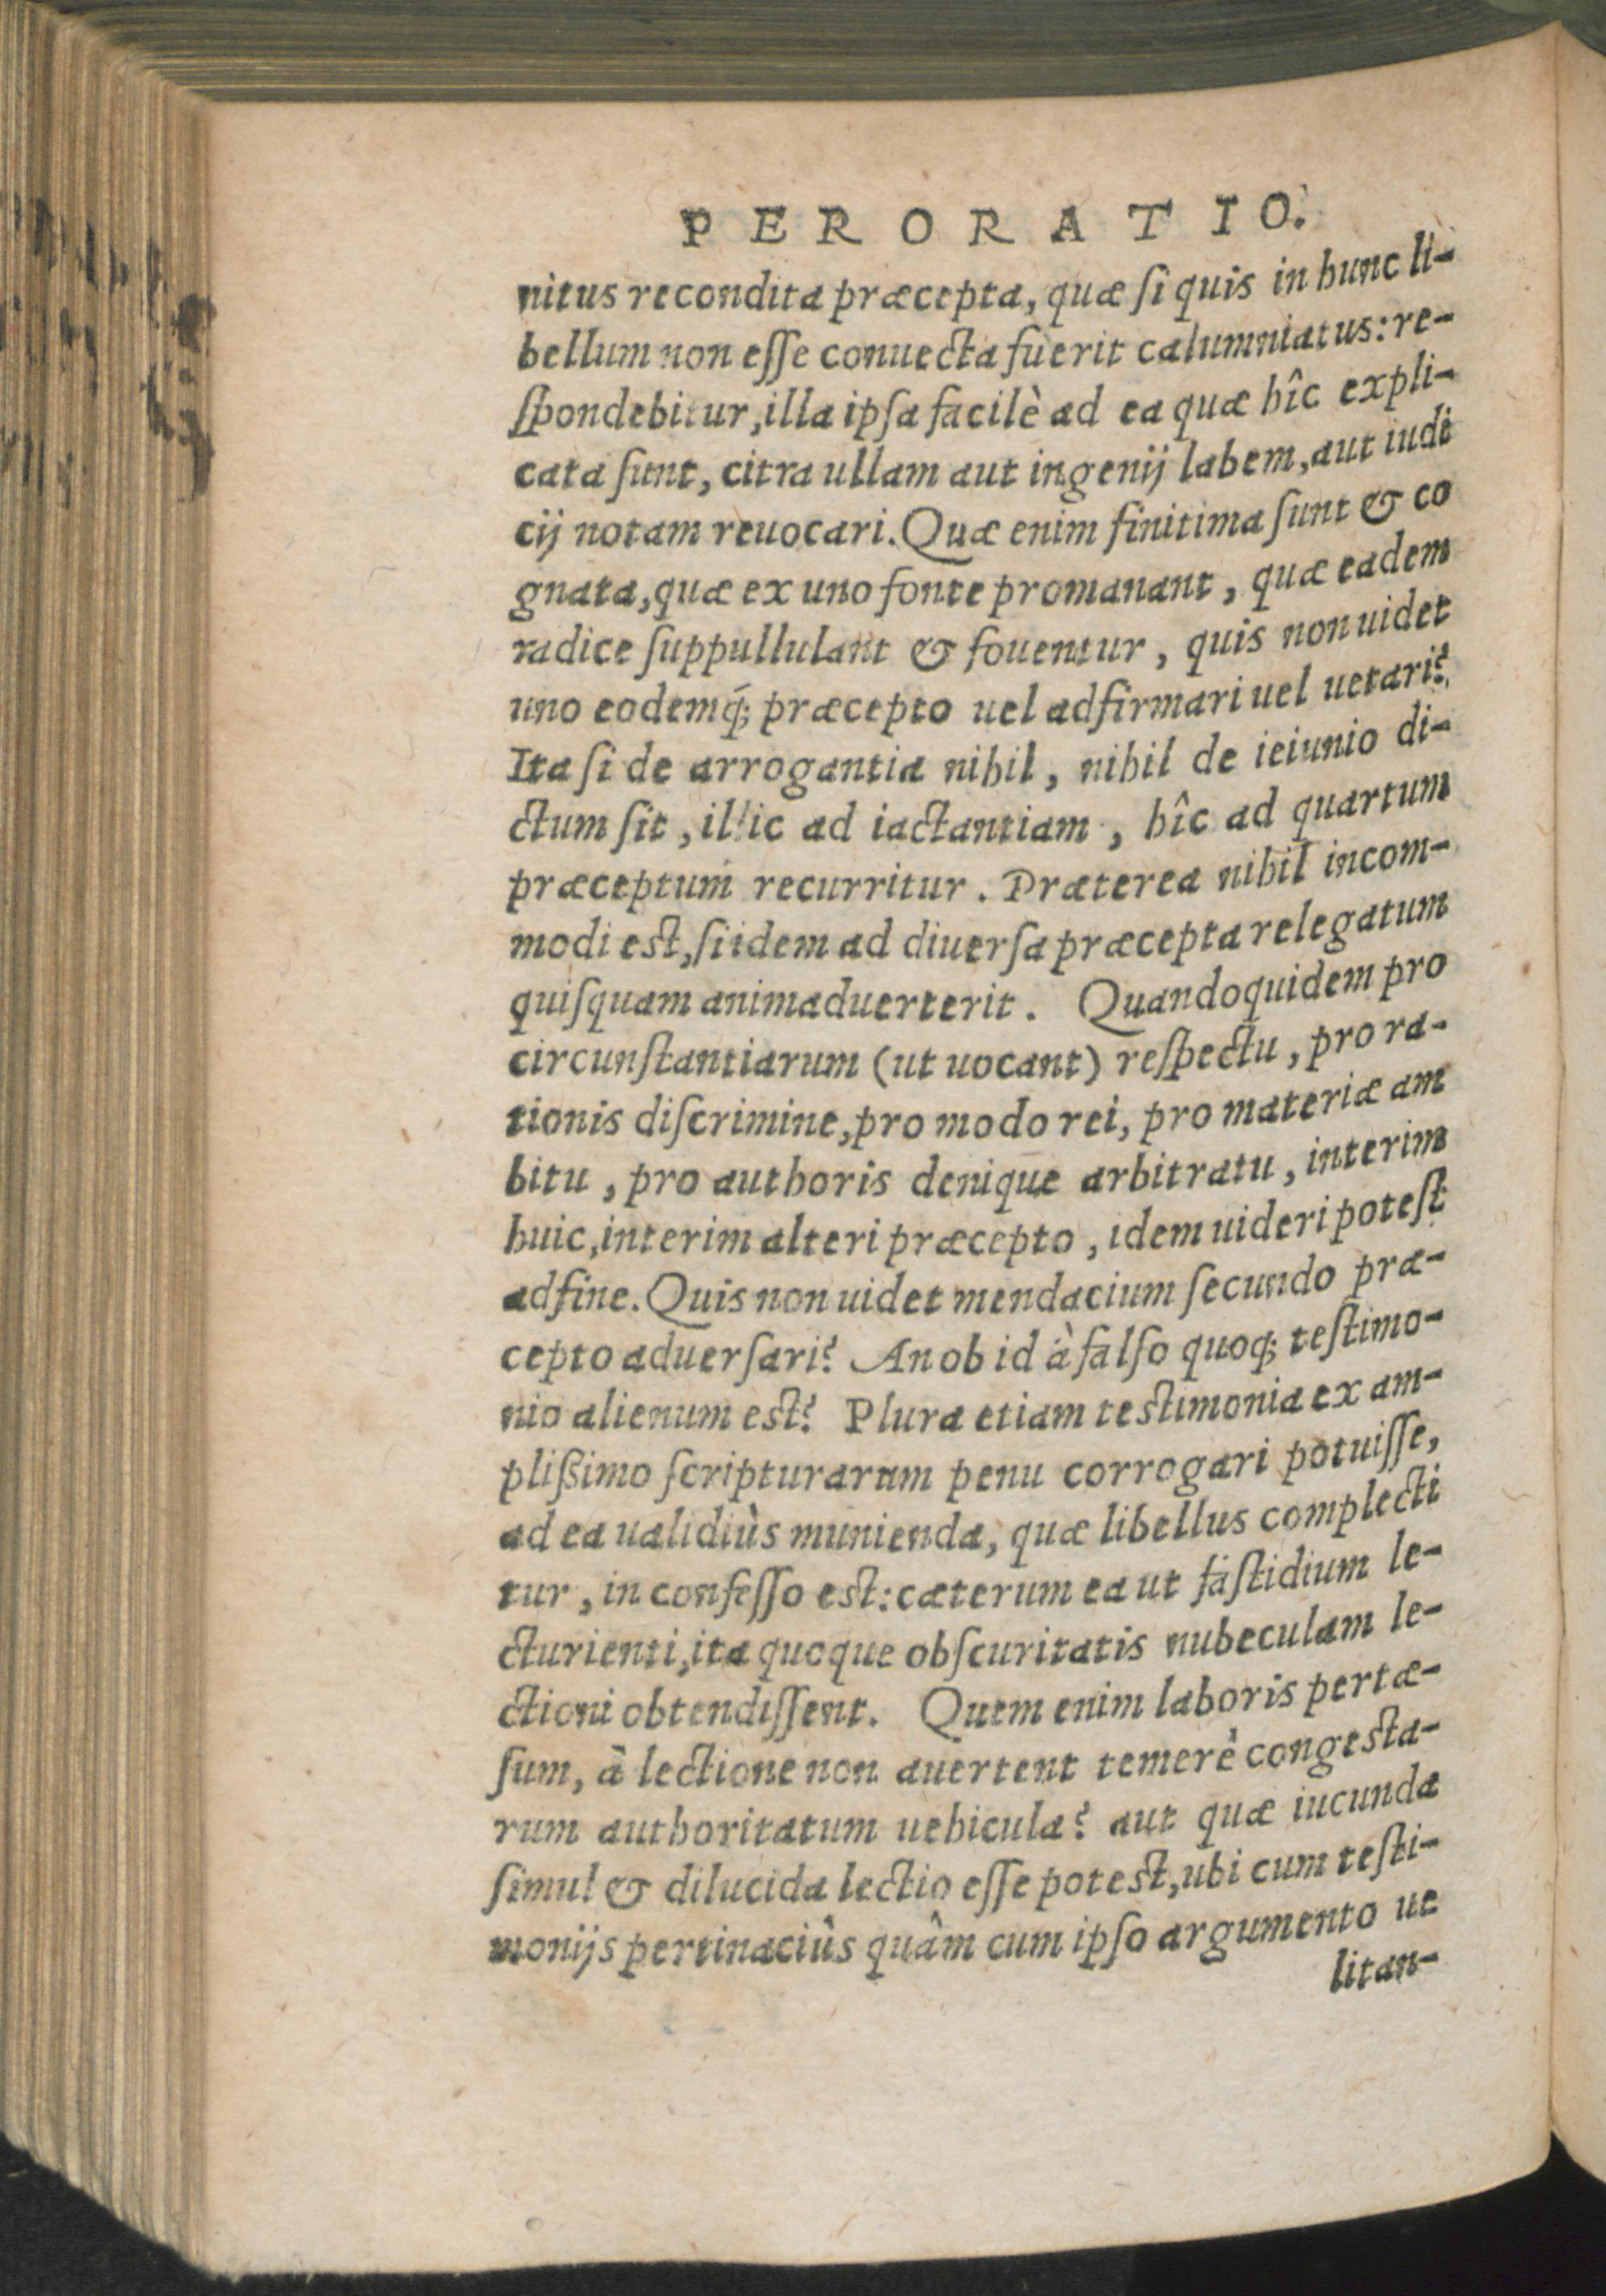 PERORATIO.
nitus recondita præcepta, quæ ſi quis in hunc li-
bellum non eſſe conuecta fuerit calumniatus: re-
ſpondebitur, illa ipſa facilè ad ea quæ hîc expli-
cata ſunt, citra ullam aut ingenij labem, aut iudi
cij notam reuocari. Quæ enim finitima ſunt & co
gnata, quæ ex uno fonte promanant, quæ eadem
radice ſuppullulant & fouentur, quis non uidet
uno eodemq́; præcepto uel adfirmari uel uetari?
Ita ſi de arrogantia nihil, nihil de ieiunio di-
ctum ſit, illic ad iactantiam, hîc ad quartum
præceptum recurritur. Præterea nihil incom-
modi est, ſi idem ad diuerſa præcepta relegatum
quiſquam animaduerterit. Quandoquidem pro
circunſtantiarum (ut uocant) reſpectu, pro ra-
tionis diſcrimine, pro modo rei, pro materiæ am
bitu, pro authoris denique arbitratu, interim
huic, interim alteri præcepto, idem uideri poteſt
adfine. Quis non uidet mendacium ſecundo præ-
cepto aduerſari? An ob id à falſo quoq; teſtimo-
nio alienum est? Plura etiam testimonia ex am-
plißimo ſcripturarum penu corrogari potuiſſe,
ad ea ualidiùs munienda, quæ libellus complecti
tur, in confeſſo est: cæterum ea ut faſtidium le-
cturienti, ita quoque obſcuritatis nubeculam le-
ctioni obtendiſſent. Quem enim laboris pertæ-
ſum, à lectione non auertent temerè congesta-
rum authoritatum uehicula? aut quæ iucunda
ſimul & dilucida lectio eſſe potest, ubi cum teſti-
monijs pertinaciùs quàm cum ipſo argumento ue
litan-